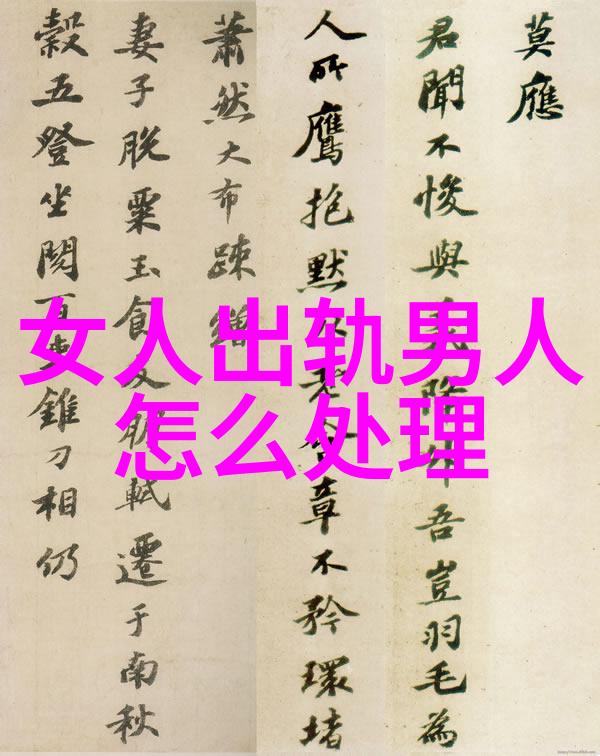 莫應
君聞不悛與 吾豈羽毛為
人所鷹抱默 章不矜環堵
蕭然大布疎繒
妻子脫粟玉食 軾遷于南秋
穀五登坐閱百吏錐刀相仍
女人出轨男人
怎么处理